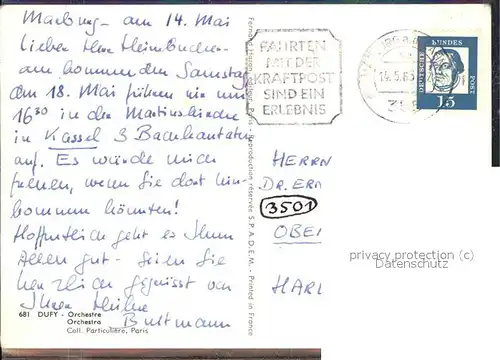 Marburg - am 14. Mai
Lieber Herr Heimbucher -
am kommenden Samstag
am 18. Mai führen wir um
16³⁰ in der Martinskirche
in Kassel 3 Bachkantaten
auf. Es würde mich
freuen, wenn Sie dort hin-
kommen könnten!
Hoffentlich geht es Ihnen
Allen gut - seien Sie
herzlich gegrüsst von
Ihrer Heike
Bultmann
681 DUFY - Orchestre
Orchestra
Coll. Particulière, Paris
Reproduction réservée S.P.A.D.E.M. - Printed in France
FAHRTEN
MIT DER
KRAFTPOST
SIND EIN
ERLEBNIS
14.5.63
355
DEUTSCHE BUNDESPOST
15
HERRN
DR. ER
3501
OBE
HARL
privacy protection (c)
Datenschutz